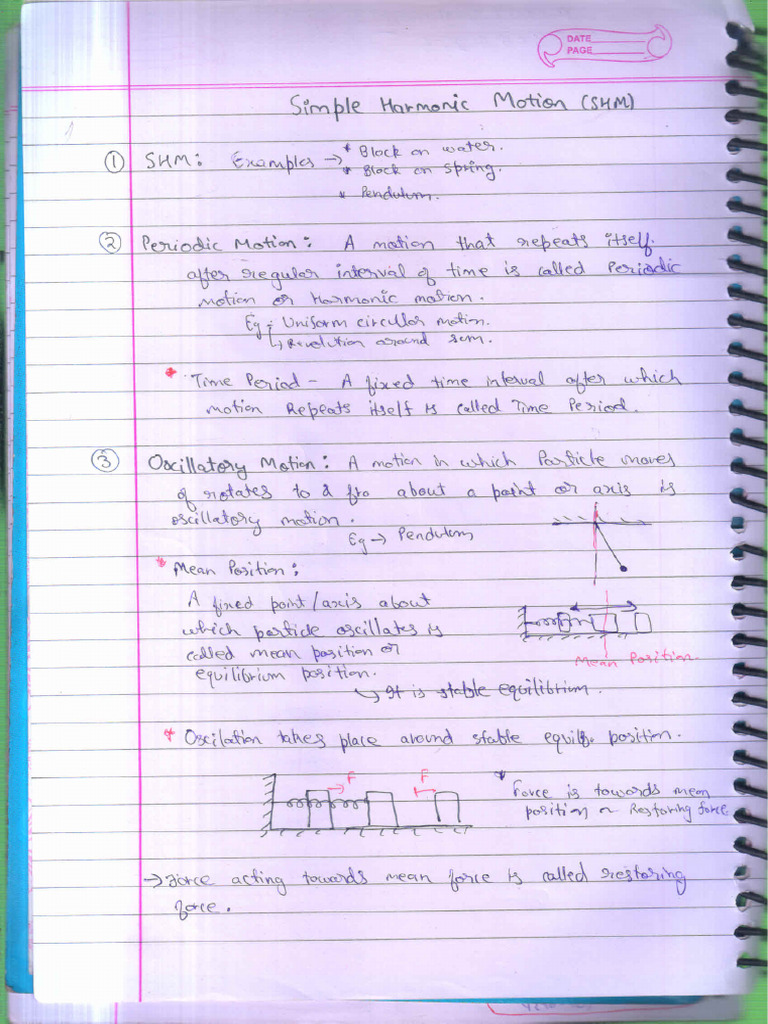 DATE
PAGE
Simple Harmonic Motion (SHM)
① SHM: Examples → * Block on water.
* Block on spring.
* Pendulum.
② Periodic Motion: A motion that repeats itself
after regular interval of time is called Periodic
motion or Harmonic motion.
Eg - Uniform circular motion.
↳ Revolution around sun.
* Time Period - A fixed time interval after which
motion Repeats itself is called Time Period.
③ Oscillatory Motion: A motion in which Particle moves
of rotates to & fro about a point or axis is
oscillatory motion.
Eg → Pendulum
* Mean Position:
A fixed point/axis about
which particle oscillates is
called mean position or
equilibrium position.
Mean Position
↳ It is stable equilibrium.
* Oscilation takes place around stable equilb. position.
F F
* Force is towards mean
position ~ Restoring force
→ Force acting towards mean force is called restoring
force.